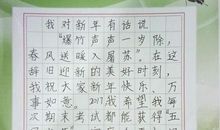 我对新年有话说
“爆竹声声一岁除，
春风送暖入屠苏。”在这
辞旧迎新的美好时刻，
我祝大家新年快乐、万
事如意。2017我希望我每
次期末考试都能获得